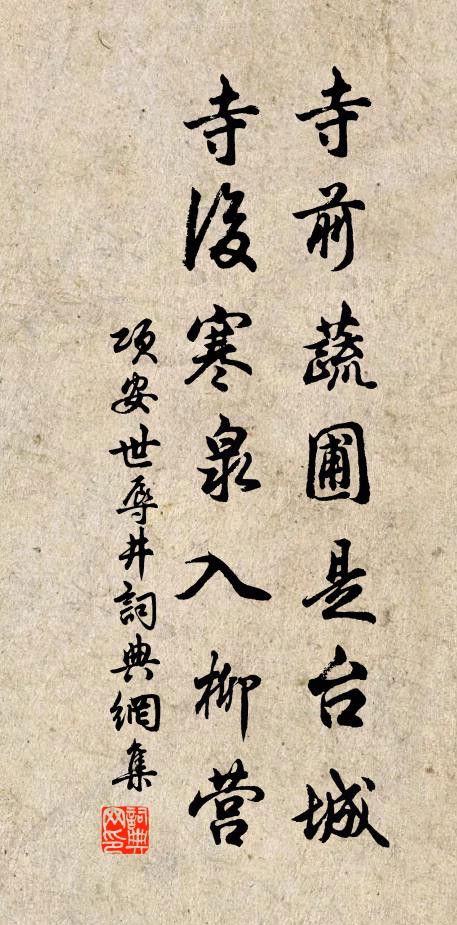 寺前蔬圃是台城
寺後寒泉入柳营
项安世辱井詞典網集
詞典网印